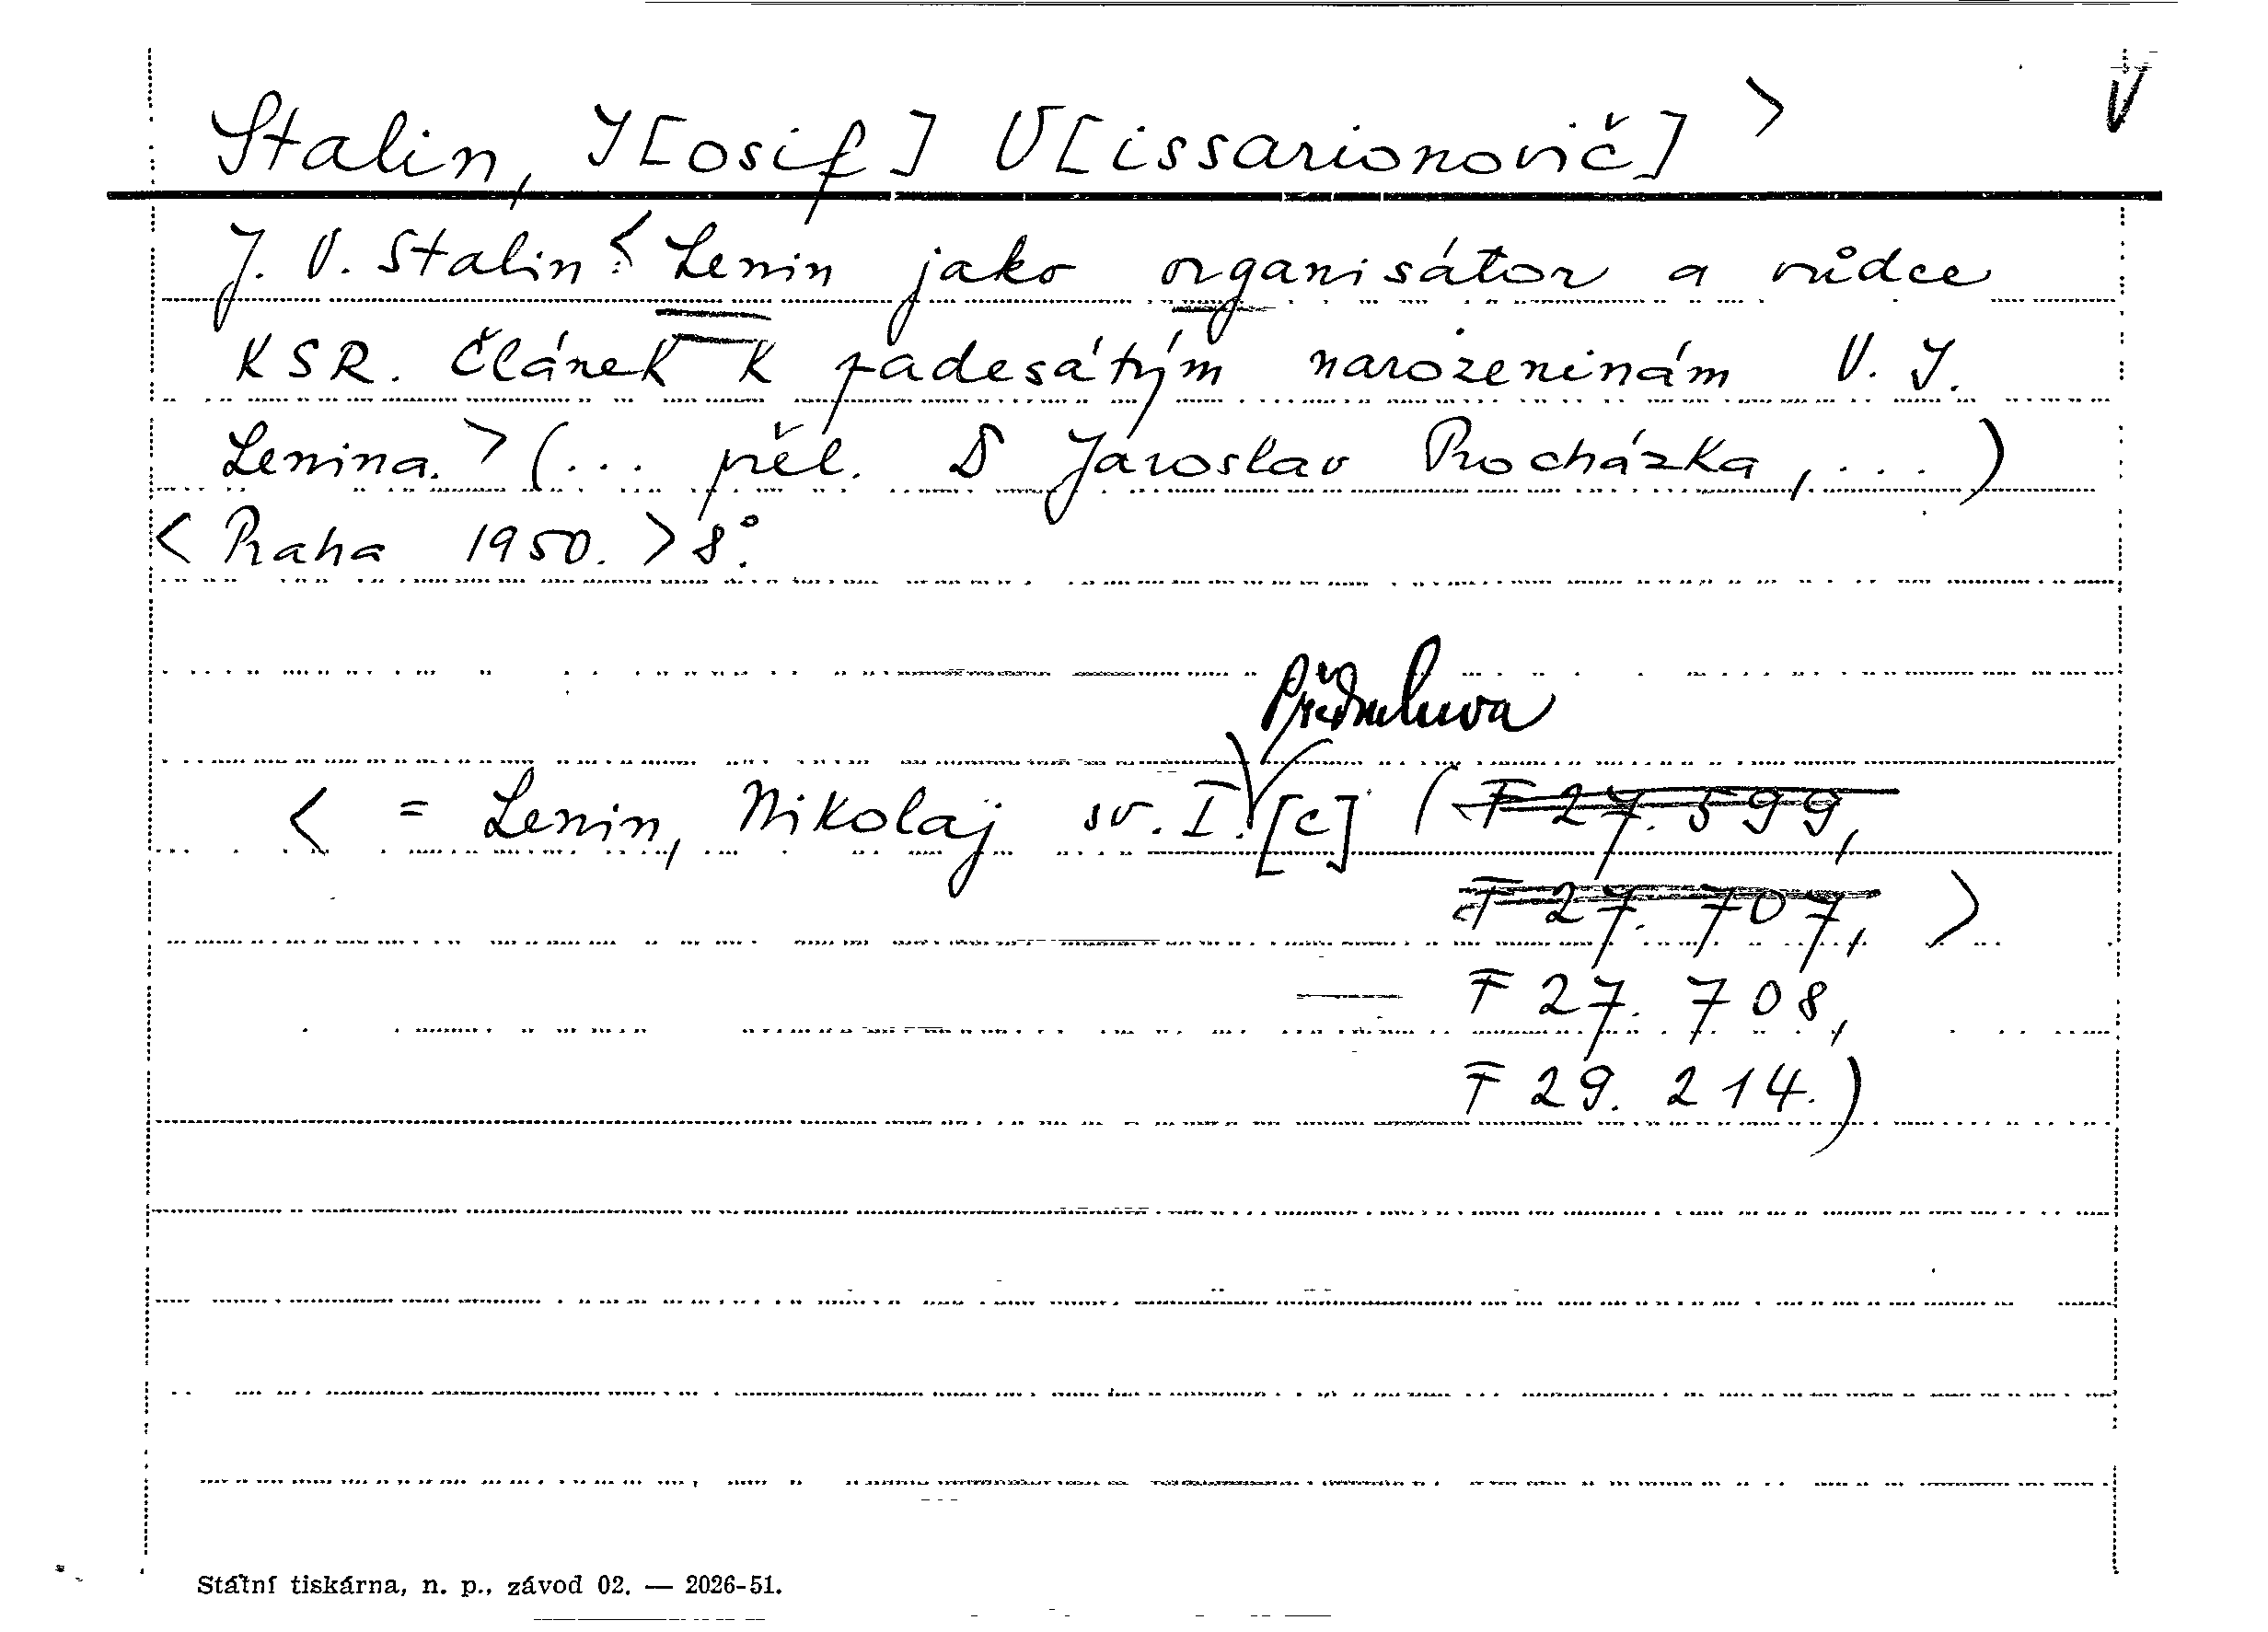 V
Stalin, J[osif] V[issarionovič] >
J. V. Stalin < Lenin jako organisátor a vůdce
KSR. Článek k padesátým narozeninám V. J.
Lenina. > (... přel. D Jaroslav Procházka, ...)
< Praha 1950. > 8°.
Předmluva
< = Lenin, Nikolaj sv. I. [c] (F 27.599,
F 27.707, >
— F 27.708,
F 29.214.)
Státní tiskárna, n. p., závod 02. — 2026-51.